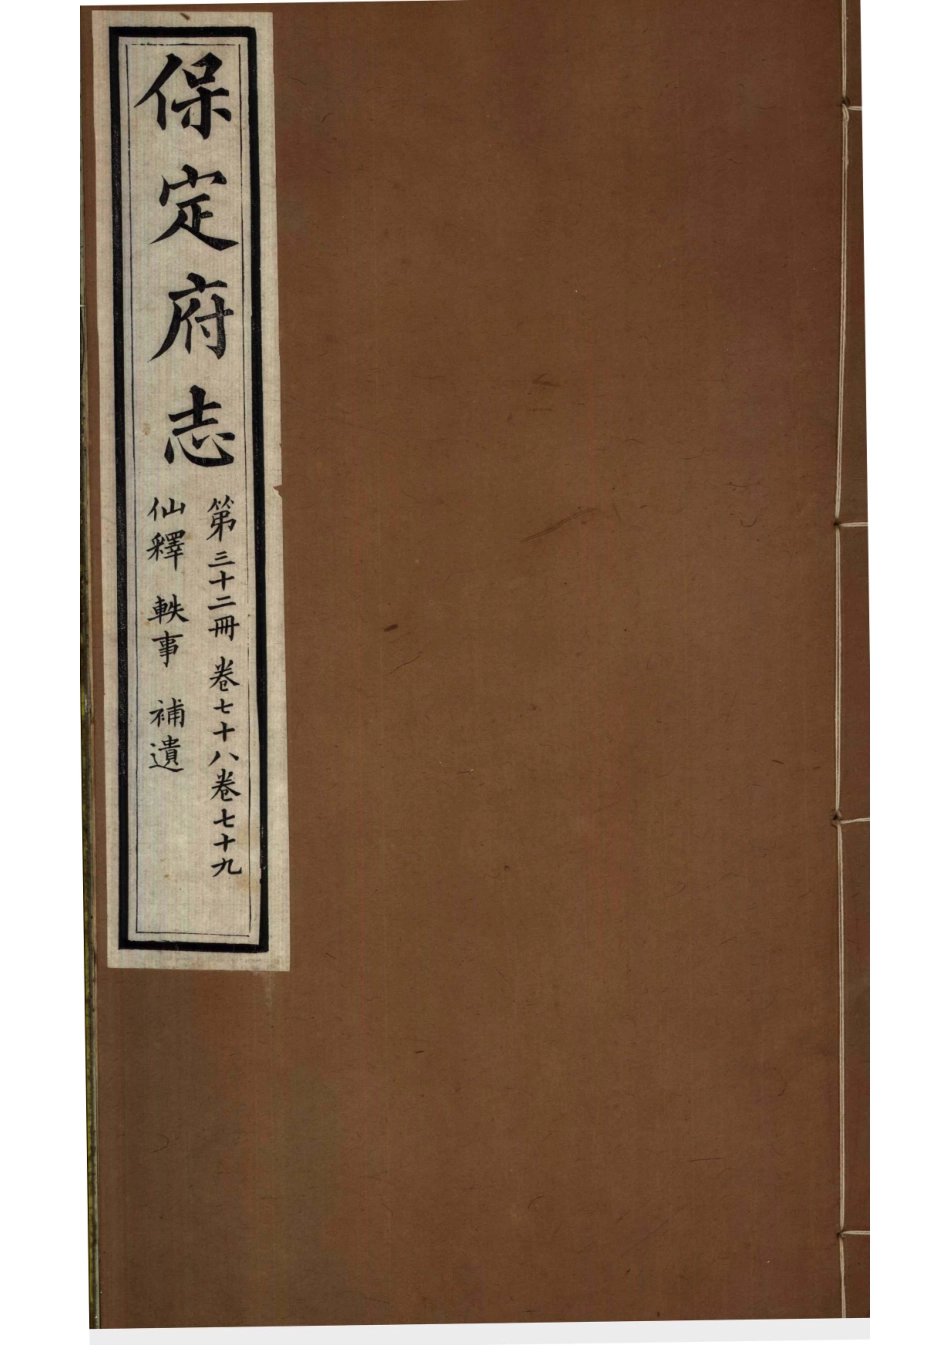 保定府志
第三十二冊 卷七十八卷七十九
仙釋 軼事 補遺